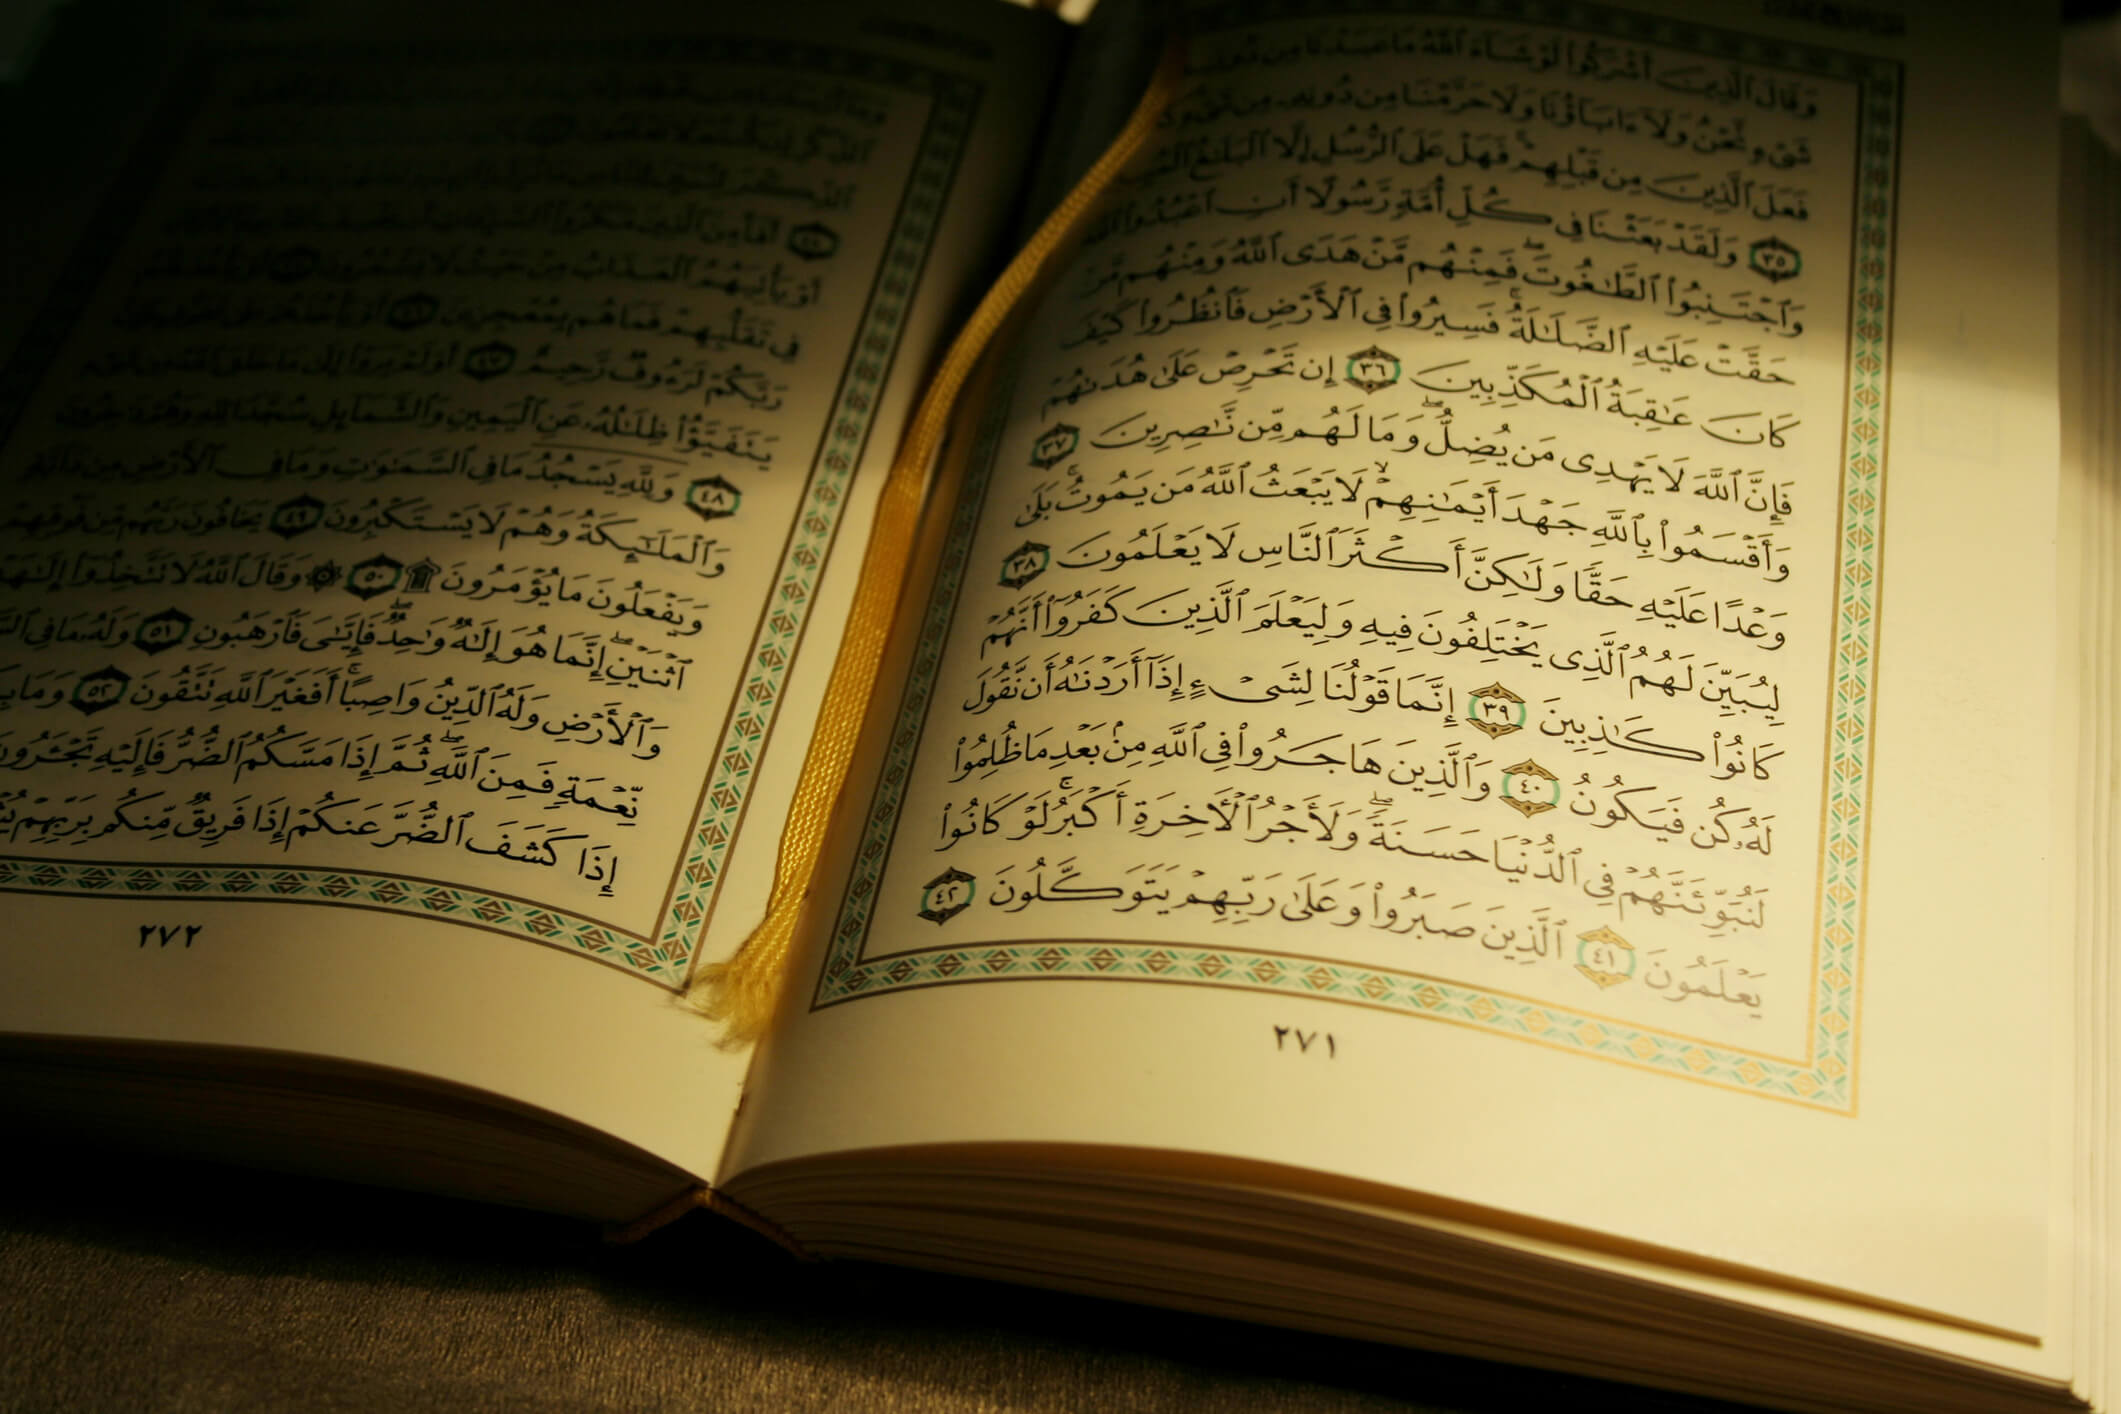 وَقَالَ ٱلَّذِينَ أَشْرَكُوا۟ لَوْ شَآءَ ٱللَّهُ مَا عَبَدْنَا مِن دُونِهِۦ مِن
شَىْءٍ نَّحْنُ وَلَآ ءَابَآؤُنَا وَلَا حَرَّمْنَا مِن دُونِهِۦ مِن شَىْءٍ
فَعَلَ ٱلَّذِينَ مِن قَبْلِهِمْ ۚ فَهَلْ عَلَى ٱلرُّسُلِ إِلَّا ٱلْبَلَـٰغُ
٣٥ وَلَقَدْ بَعَثْنَا فِى كُلِّ أُمَّةٍ رَّسُولًا أَنِ ٱعْبُدُوا۟ ٱللَّهَ
وَٱجْتَنِبُوا۟ ٱلطَّـٰغُوتَ ۖ فَمِنْهُم مَّنْ هَدَى ٱللَّهُ وَمِنْهُم مَّنْ
حَقَّتْ عَلَيْهِ ٱلضَّلَـٰلَةُ ۚ فَسِيرُوا۟ فِى ٱلْأَرْضِ فَٱنظُرُوا۟ كَيْفَ
كَانَ عَـٰقِبَةُ ٱلْمُكَذِّبِينَ ٣٦ إِن تَحْرِصْ عَلَىٰ هُدَىٰهُمْ
فَإِنَّ ٱللَّهَ لَا يَهْدِى مَن يُضِلُّ ۖ وَمَا لَهُم مِّن نَّـٰصِرِينَ ٣٧
وَأَقْسَمُوا۟ بِٱللَّهِ جَهْدَ أَيْمَـٰنِهِمْ ۙ لَا يَبْعَثُ ٱللَّهُ مَن يَمُوتُ ۚ بَلَىٰ
وَعْدًا عَلَيْهِ حَقًّا وَلَـٰكِنَّ أَكْثَرَ ٱلنَّاسِ لَا يَعْلَمُونَ ٣٨
لِيُبَيِّنَ لَهُمُ ٱلَّذِى يَخْتَلِفُونَ فِيهِ وَلِيَعْلَمَ ٱلَّذِينَ كَفَرُوٓا۟ أَنَّهُمْ
كَانُوا۟ كَـٰذِبِينَ ٣٩ إِنَّمَا قَوْلُنَا لِشَىْءٍ إِذَآ أَرَدْنَـٰهُ أَن نَّقُولَ
لَهُۥ كُن فَيَكُونُ ٤٠ وَٱلَّذِينَ هَاجَرُوا۟ فِى ٱللَّهِ مِنۢ بَعْدِ مَا ظُلِمُوا۟
لَنُبَوِّئَنَّهُمْ فِى ٱلدُّنْيَا حَسَنَةً ۖ وَلَأَجْرُ ٱلْـَٔاخِرَةِ أَكْبَرُ ۚ لَوْ كَانُوا۟
يَعْلَمُونَ ٤١ ٱلَّذِينَ صَبَرُوا۟ وَعَلَىٰ رَبِّهِمْ يَتَوَكَّلُونَ ٤٢
٢٧١
أَفَأَمِنَ ٱلَّذِينَ مَكَرُوا۟ ٱلسَّيِّـَٔاتِ
أَوْ يَأْتِيَهُمُ ٱلْعَذَابُ مِنْ حَيْثُ لَا يَشْعُرُونَ
فِى تَقَلُّبِهِمْ فَمَا هُم بِمُعْجِزِينَ ٤٦
رَبَّكُمْ لَرَءُوفٌ رَّحِيمٌ ٤٧ أَوَلَمْ يَرَوْا۟ إِلَىٰ مَا خَلَقَ ٱللَّهُ
يَتَفَيَّؤُا۟ ظِلَـٰلُهُۥ عَنِ ٱلْيَمِينِ وَٱلشَّمَآئِلِ سُجَّدًا لِّلَّهِ وَهُمْ
٤٨ وَلِلَّهِ يَسْجُدُ مَا فِى ٱلسَّمَـٰوَٰتِ وَمَا فِى ٱلْأَرْضِ مِن دَآبَّةٍ
وَٱلْمَلَـٰٓئِكَةُ وَهُمْ لَا يَسْتَكْبِرُونَ ٤٩ يَخَافُونَ رَبَّهُم مِّن فَوْقِهِمْ
وَيَفْعَلُونَ مَا يُؤْمَرُونَ ۩ ٥٠ ۞ وَقَالَ ٱللَّهُ لَا تَتَّخِذُوٓا۟ إِلَـٰهَيْنِ
ٱثْنَيْنِ ۖ إِنَّمَا هُوَ إِلَـٰهٌ وَٰحِدٌ ۖ فَإِيَّـٰىَ فَٱرْهَبُونِ ٥١ وَلَهُۥ مَا فِى
وَٱلْأَرْضِ وَلَهُ ٱلدِّينُ وَاصِبًا ۚ أَفَغَيْرَ ٱللَّهِ تَتَّقُونَ ٥٢ وَمَا
نِّعْمَةٍ فَمِنَ ٱللَّهِ ۖ ثُمَّ إِذَا مَسَّكُمُ ٱلضُّرُّ فَإِلَيْهِ تَجْـَٔرُونَ
إِذَا كَشَفَ ٱلضُّرَّ عَنكُمْ إِذَا فَرِيقٌ مِّنكُم بِرَبِّهِمْ
٢٧٢